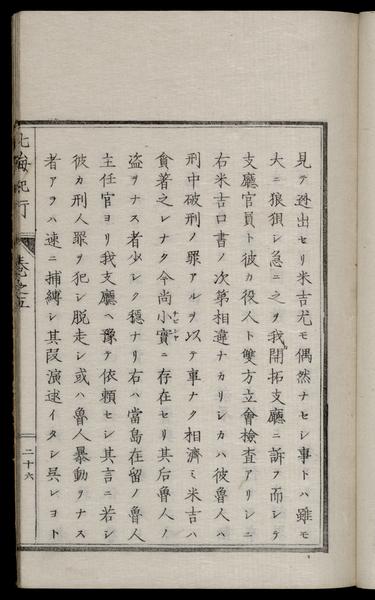 見テ迯出セリ米吉尤モ偶然ナセシ事トハ雖モ
大ニ狼狽シ急ニ之ヲ我開拓支廳ニ訴フ而シテ
支廳官員ト彼カ役人ト雙方立會檢査アリシニ
右米吉口書ノ次第相違ナカリシカハ彼魯人ハ
刑中破刑ノ罪アルヲ以テ事ナク相濟ミ米吉ハ
貪著之レナク今尚小實ニ存在セリ其后魯人ノ
盜ヲナス者少シク穩ナリ右ハ當島在留ノ魯人
主任官ヨリ我支廳ヘ豫テ依頼セシ其言ニ若シ
彼カ刑人罪ヲ犯シ脱走シ或ハ魯人暴動ヲナス
者アラハ速ニ捕縛シ其段演述イタシ呉レヨト
北海紀行
卷之五
二十六